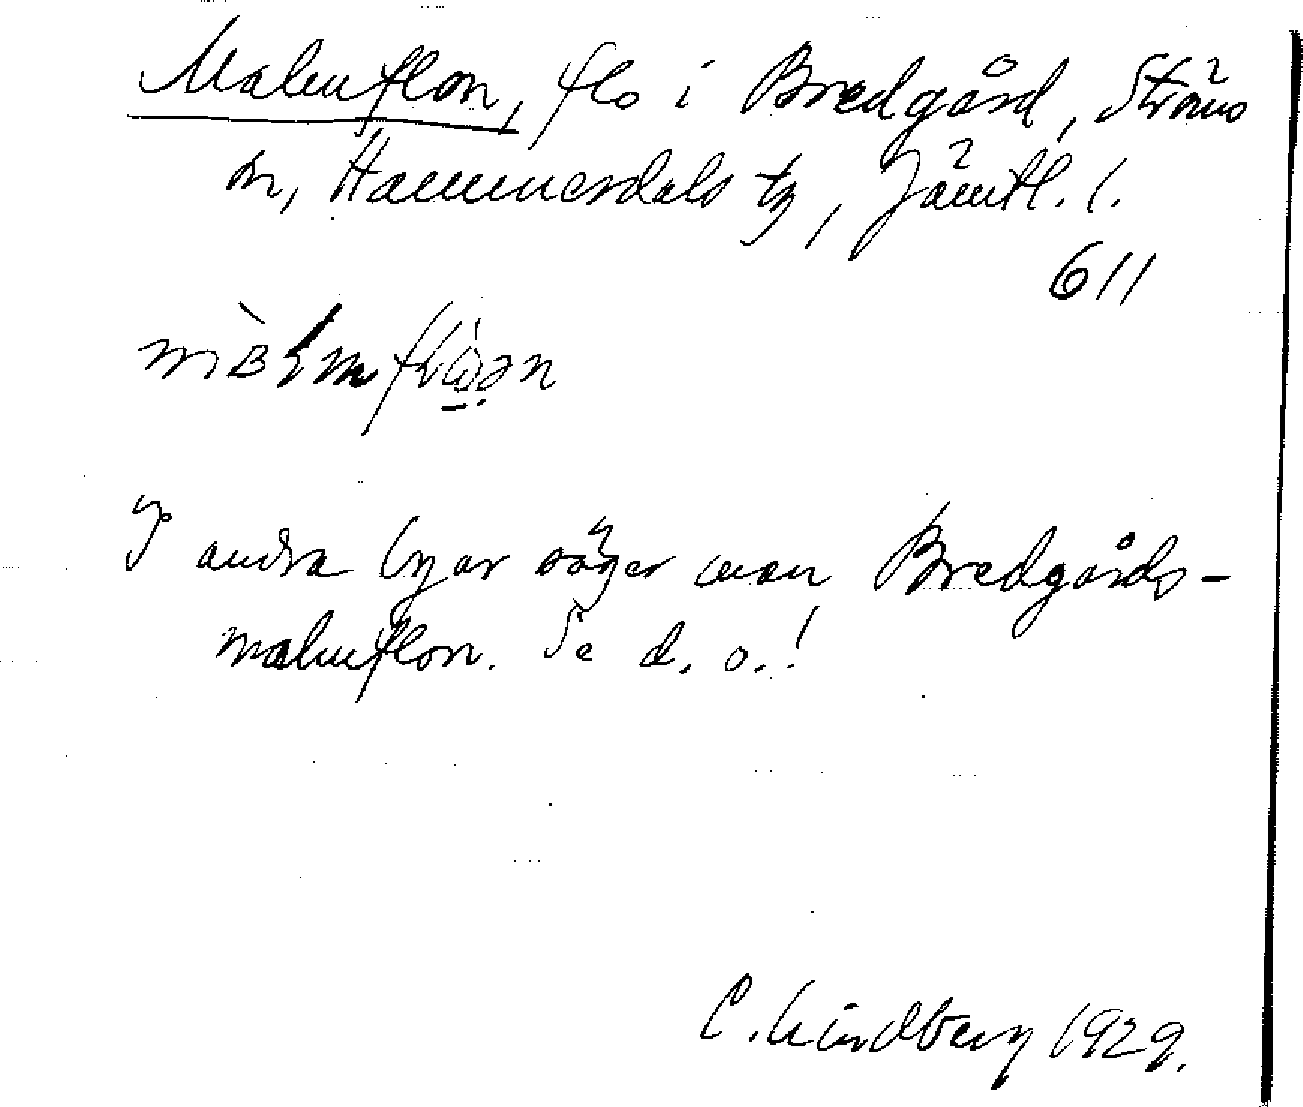 Malmflon, flo i Bredgård, Ströms
sn, Hammerdals tg, Jämtl. l.
611
I andra byar säger man Bredgårds-
malmflon. Se d. o.!
C. Lindberg 1929.